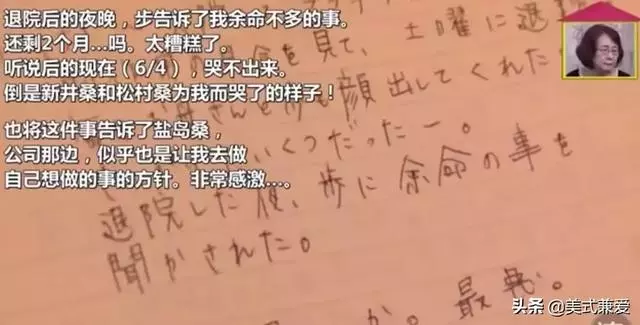 退院后的夜晚，步告诉了我余命不多的事。
还剩2个月…吗。太糟糕了。
听说后的现在（6/4），哭不出来。
倒是新井桑和松村桑为我而哭了的样子！
也将这件事告诉了盐岛桑，
公司那边，似乎也是让我去做
自己想做的事的方针。非常感激…。
を見て、土曜に退
顔出してくれた
いくつだったー。
退院した夜、歩に余命の事を
聞かされた。
か。最悪。
头条 @美式兼爱